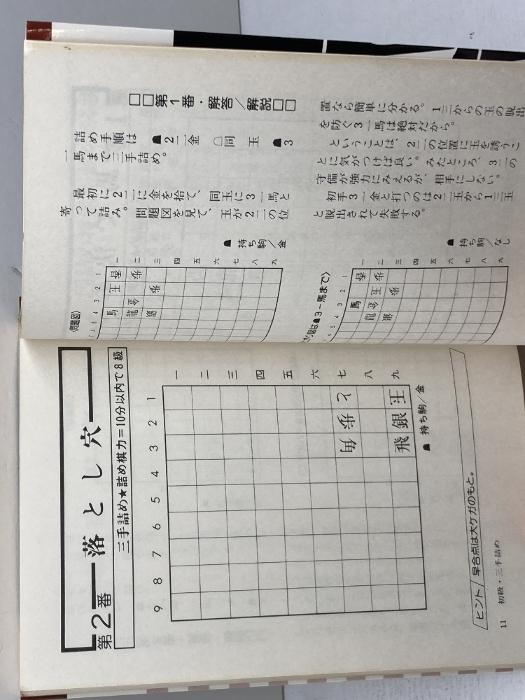 第1番・解答/解説
詰め手順は ☗2二金 ☖同 玉 ☗3
一馬まで三手詰め。
最初に2二に金を捨て、同玉に3一馬と
寄って詰み。問題図を見て、玉が2二の位
置なら簡単に分かる。1三からの玉の脱出
を防ぐ3一馬は絶対だから。
ということは、2二の位置に玉を誘うこ
とに気がつけば良い。みたところ、3一の
守備が強力にみえるが、相手にしない。
初手3一金と打つのは2二玉から1三玉
と脱出されて失敗する。
〈問題図〉
☗持ち駒/金
4 3 2 1
一 二 三 四 五 六 七 八 九
☗3一馬まで〉
☗持ち駒/なし
5 4 3 2 1
一 二 三 四 五 六 七 八 九
第2番
落とし穴
三手詰め★詰め棋力=10分以内で8級
9 8 7 6 5 4 3 2 1
一
二
三
四
五
六
七 角 と
八
九 飛 銀 王
☗持ち駒/金
ヒント/早合点は大ケガのもと。
11 初級・三手詰め